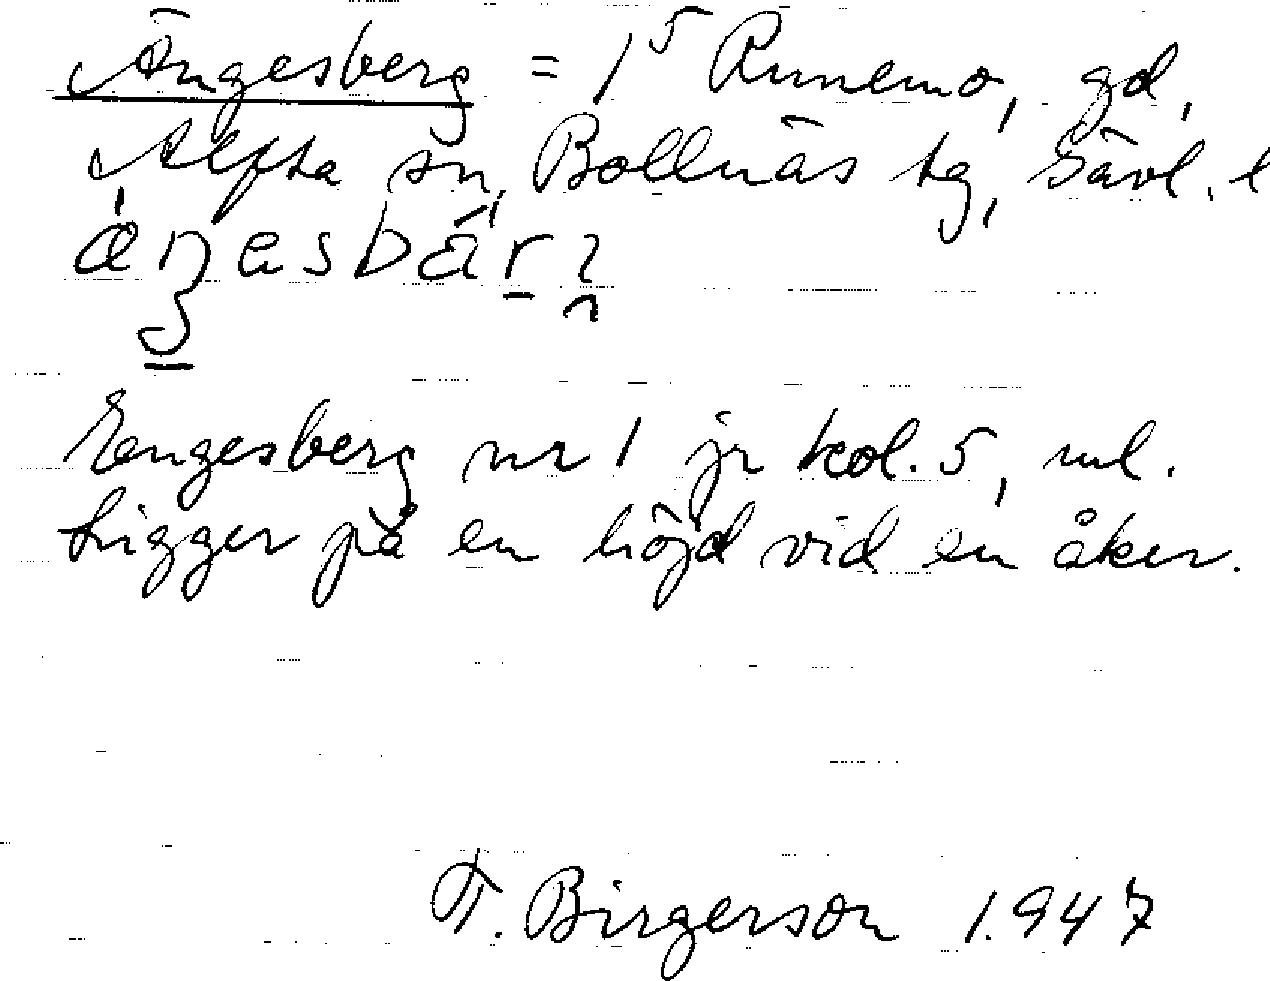 Ängesberg = 1⁵ Runemo, gd,
Alfta sn, Bollnäs tg, Gävl. l
Engesberg nr 1 jr kol. 5, uml.
Ligger på en höjd vid en åker.
F. Birgerson 1947